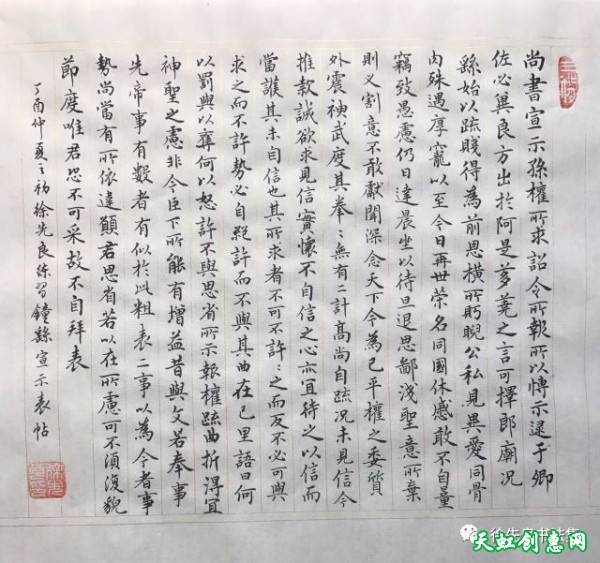 尚書宣示孫權所求詔令所報所以博示逮于卿
佐必冀良方出於阿是芻蕘之言可擇郎廟況
繇始以疏賤得為前恩橫所眄睨公私見異愛同骨
肉殊遇厚寵以至今日再世榮名同國休慼敢不自量
竊致愚慮仍日達晨坐以待旦退思鄙淺聖意所棄
則又割意不敢獻聞深念天下今為已平權之委質
外震神武度其拳〻無有二計高尚自疏況未見信今
推款誠欲求見信實懷不自信之心亦宜待之以信而
當護其未自信也其所求者不可不許〻之而反不必可與
求之而不許勢必自絕許而不與其曲在己里語曰何
以罰與以奪何以怒許不與思省所示報權疏曲折得宜
神聖之慮非今臣下所能有增益昔與文若奉事
先帝事有數者有似於此粗表二事以為今者事
勢尚當有所依違願君思省若以在所慮可不須復貌
節度唯君恐不可采故不自拜表
丁酉仲夏之初徐先良練習鐘繇宣示表帖
天虹创惠网